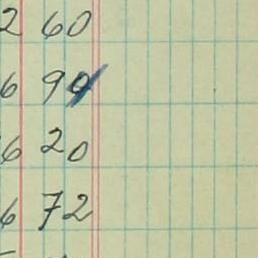 2 60
6 94
6 20
6 72